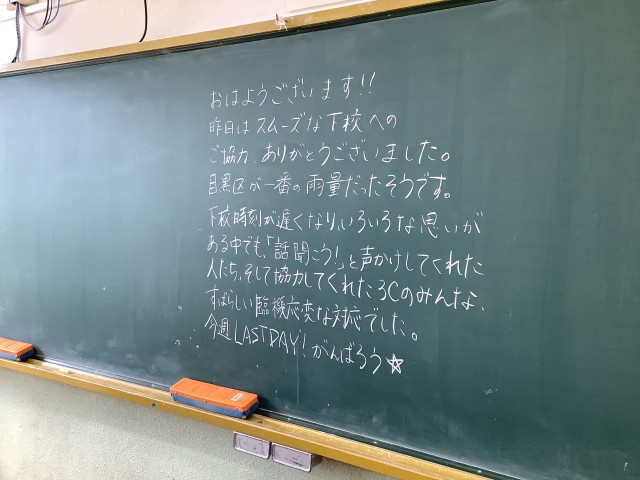 おはようございます!!
昨日はスムーズな下校への
ご協力、ありがとうございました。
目黒区が一番の雨量だったそうです。
下校時刻が遅くなり、いろいろな思いが
ある中でも、「話聞こう!」と声かけしてくれた
人たち、そして協力してくれた3Cのみんな、
すばらしい臨機応変な対応でした。
今週LASTDAY!がんばろう☆